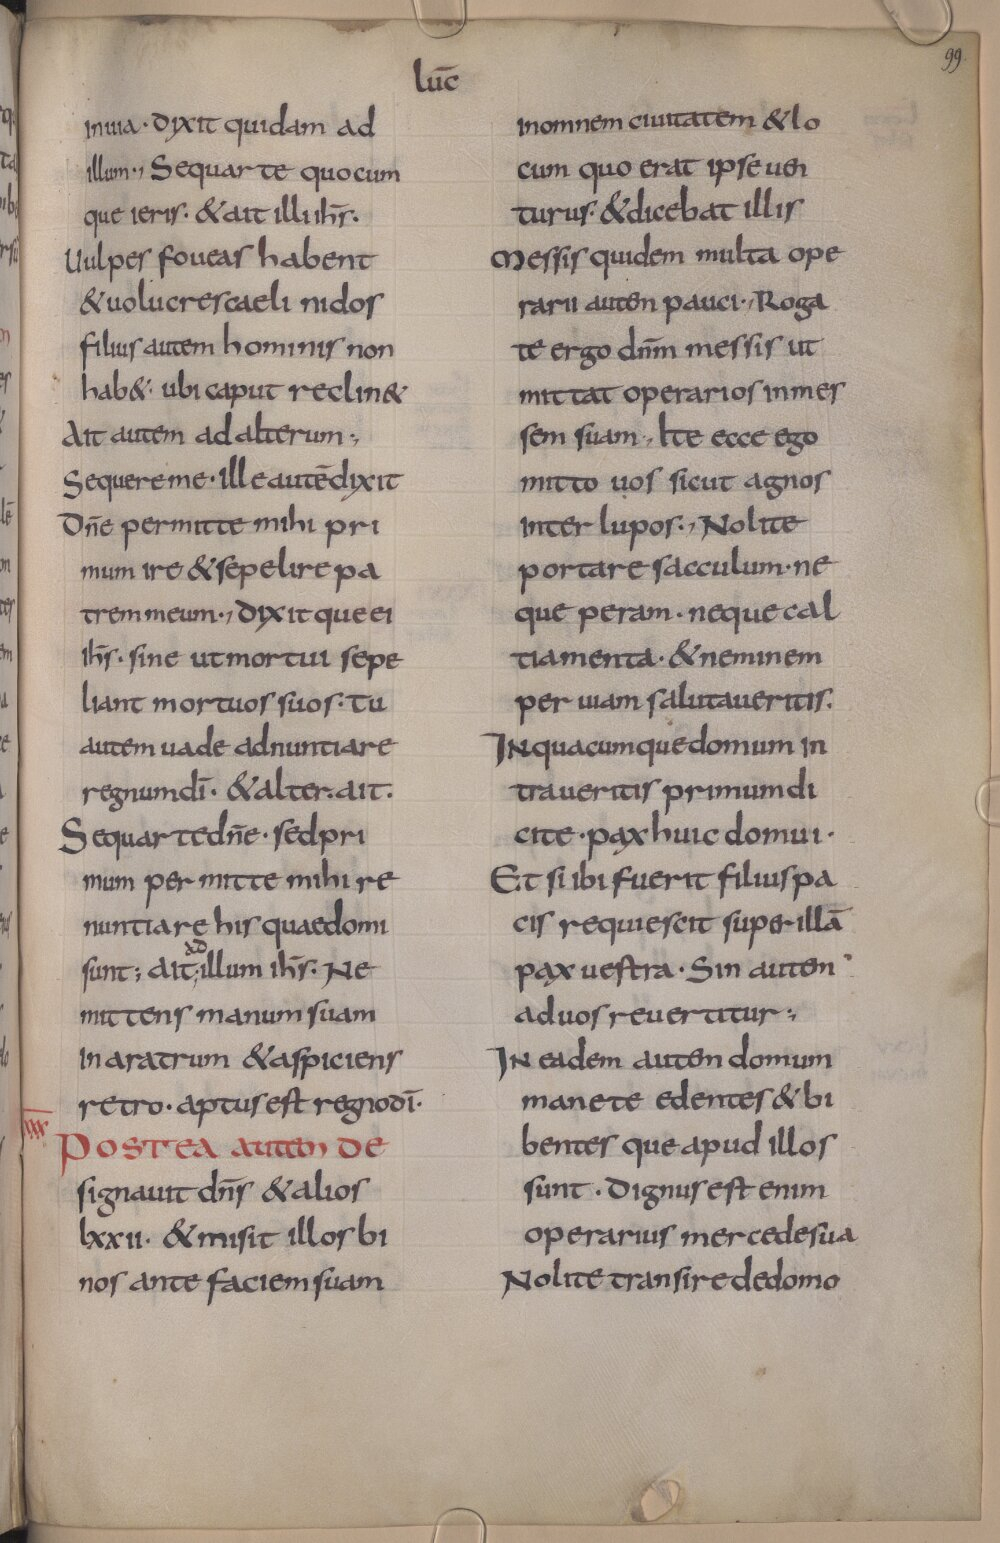 luc̄
99
in uia· dixit quidam ad
illum·, Sequar te quocum
que ieris· & ait illi ih̄s·
Uulpes foueas habent
& uolucres caeli nidos
filius autem hominis non
hab& ubi caput reclin&
Ait autem ad alterum·,
Sequere me· ille autē dixit
Dn̄e permitte mihi pri
mum ire & sepelire pa
trem meum·, dixit que ei
ih̄s· sine ut mortui sepe
liant mortuos suos· tu
autem uade adnuntiare
regnum dī· & alter· ait·
Sequar te dn̄e· sed pri
mum permitte mihi re
nuntiare his quae domi
ad
sunt; ait; illum ih̄s· Ne
mittens manum suam
in aratrum & aspiciens
retro· aptus est regno dī·
Postea autem de
signauit dn̄s & alios
lxxii· & misit illos bi
nos ante faciem suam
in omnem ciuitatem & lo
cum quo erat ipse uen
turus· & dicebat illis
Messis quidem multa ope
rarii autem pauci·, Roga
te ergo dn̄m messis ut
mittat operarios in mes
sem suam·, Ite ecce ego
mitto uos sicut agnos
inter lupos·, Nolite
portare sacculum· ne
que peram· neque cal
tiamenta· & neminem
per uiam salutaueritis·
In quacumque domum in
traueritis primum di
cite· pax huic domui·
Et si ibi fuerit filius pa
cis requiescit super illā
pax uestra· Sin autem
ad uos reuertitur·,
In eadem autem domum
manete edentes & bi
bentes que apud illos
sunt· dignus est enim
operarius mercede sua
Nolite transire de domo